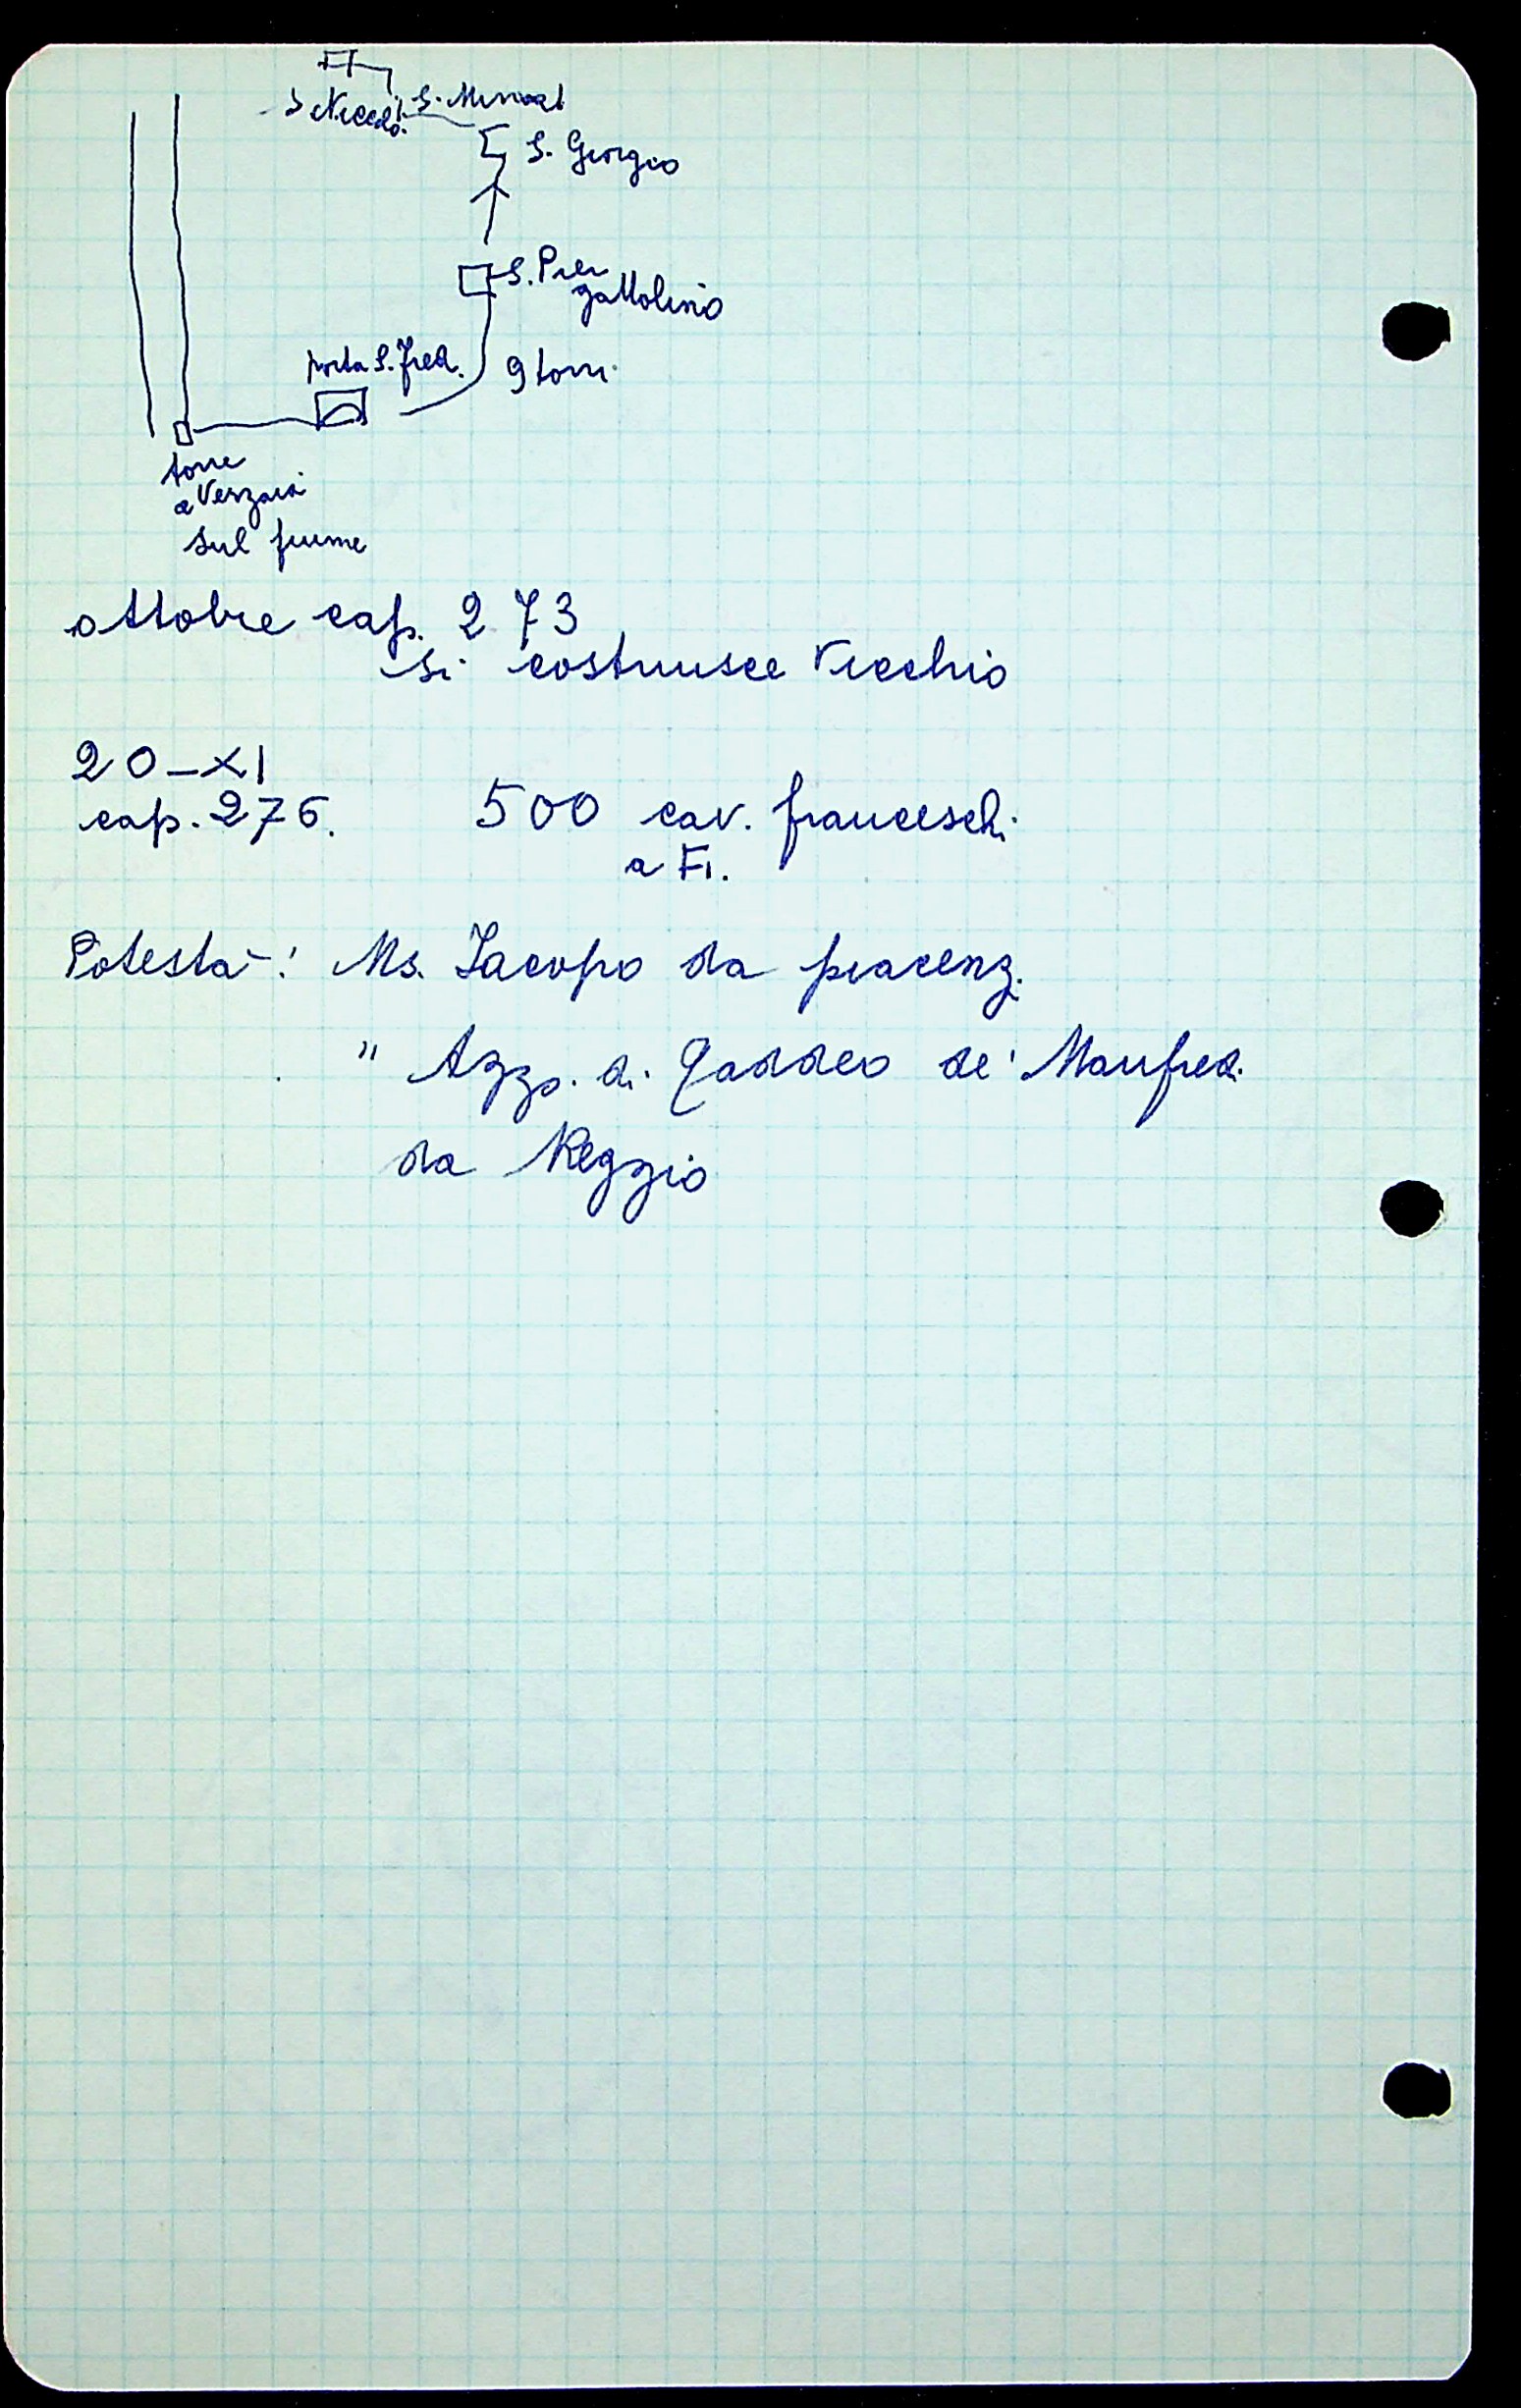 S. Niccolò. S. Miniat
S. Giorgio
S. Pier
gattolino
porta S. Fred. 9 torri
torre
a Verzaia
sul fiume
ottobre cap. 273
si costruisce Vicchio
20-XI
cap. 276. 500 cav. franceschi
a Fi.
Potestà: Ms. Iacopo da piacenz.
" Azzo. di Taddeo de' Manfred.
da Reggio